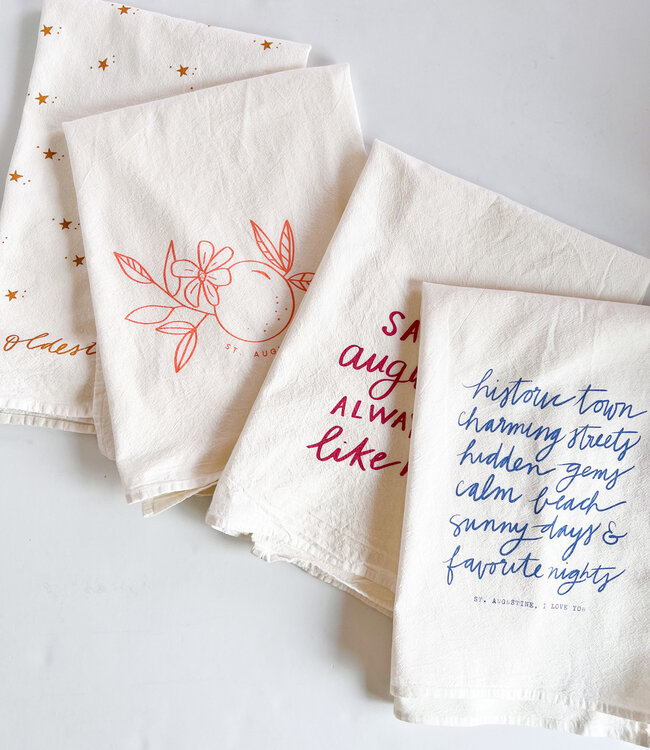 Oldest
ST. AUG
SA
augu
ALWA
like
historic town
charming streets
hidden gems
calm beach
sunny days &
favorite nights
ST. AUGUSTINE, I LOVE YOU